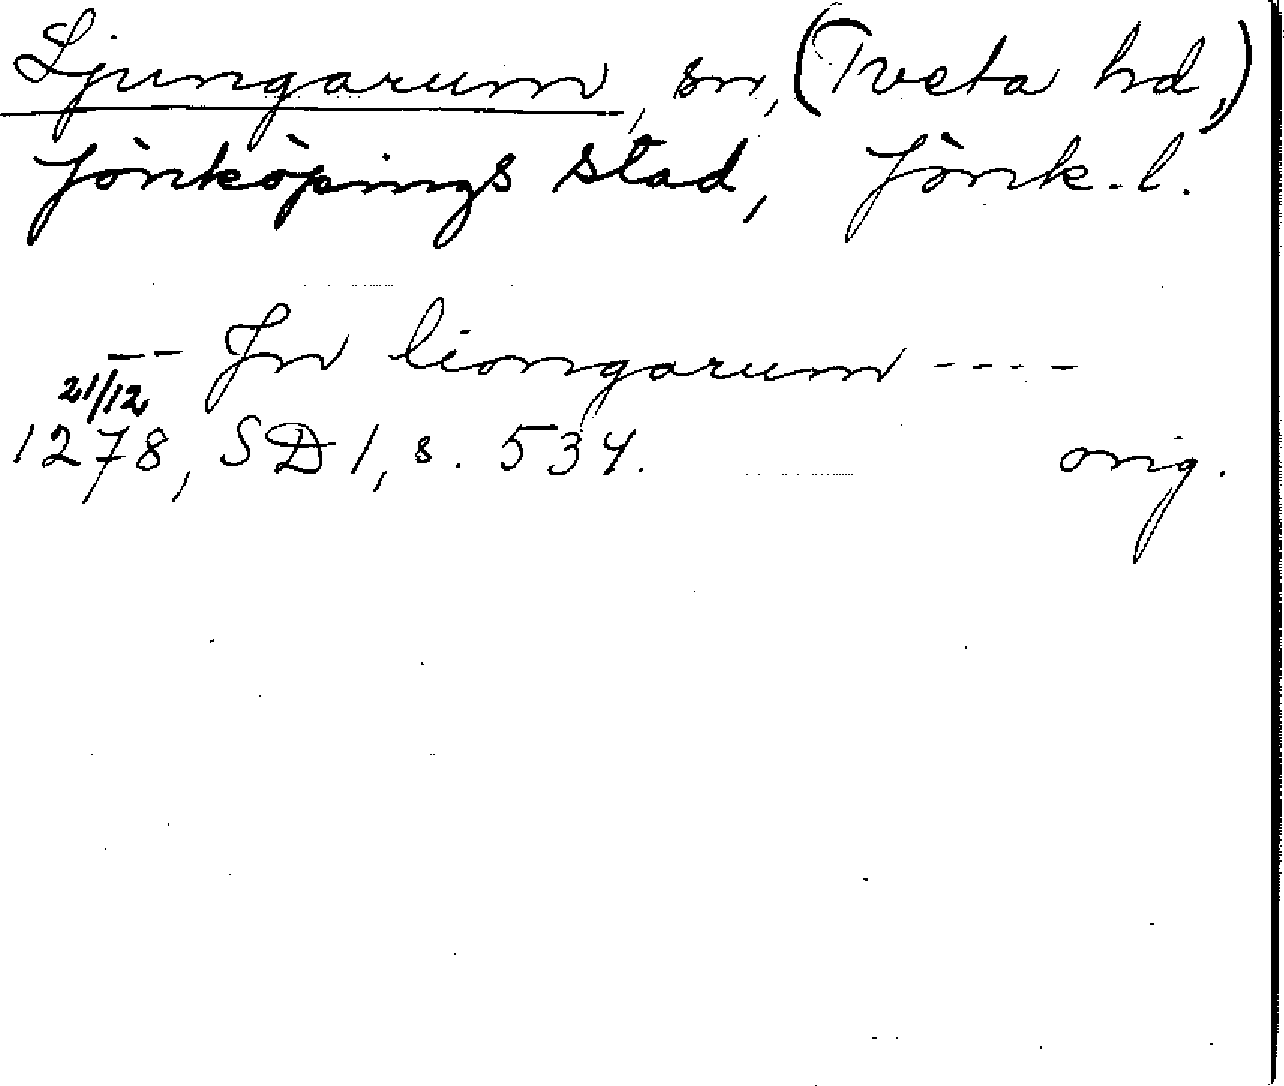 Ljungarum, sn, (Tveta hd,)
Jönköpings stad, Jönk. l.
-- Jn liongarum ----
21/12
1278, SD 1, s. 534. orig.